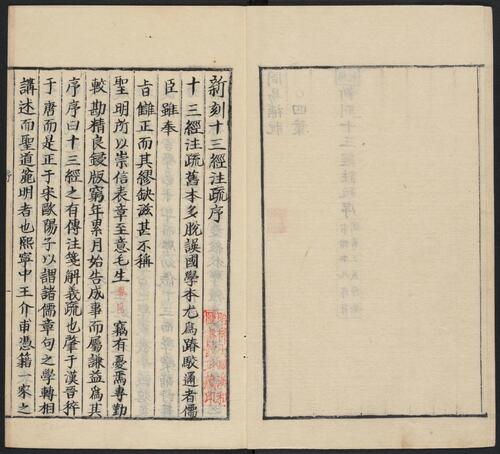 新刻十三經注疏序
十三經注疏舊本多脫誤國學本尤為踳駁邇者儒
臣雖奉
旨讎正而其繆缺滋甚不稱
聖明所以崇信表章至意毛生鳳苞竊有憂焉專勤
較勘精良鋟版窮年累月始告成事而屬謙益為其
序序曰十三經之有傳注箋解義疏也肇于漢晉稡
于唐而是正于宋歐陽子以謂諸儒章句之學轉相
講述而聖道麤明者也熙寧中王介甫憑藉一家之